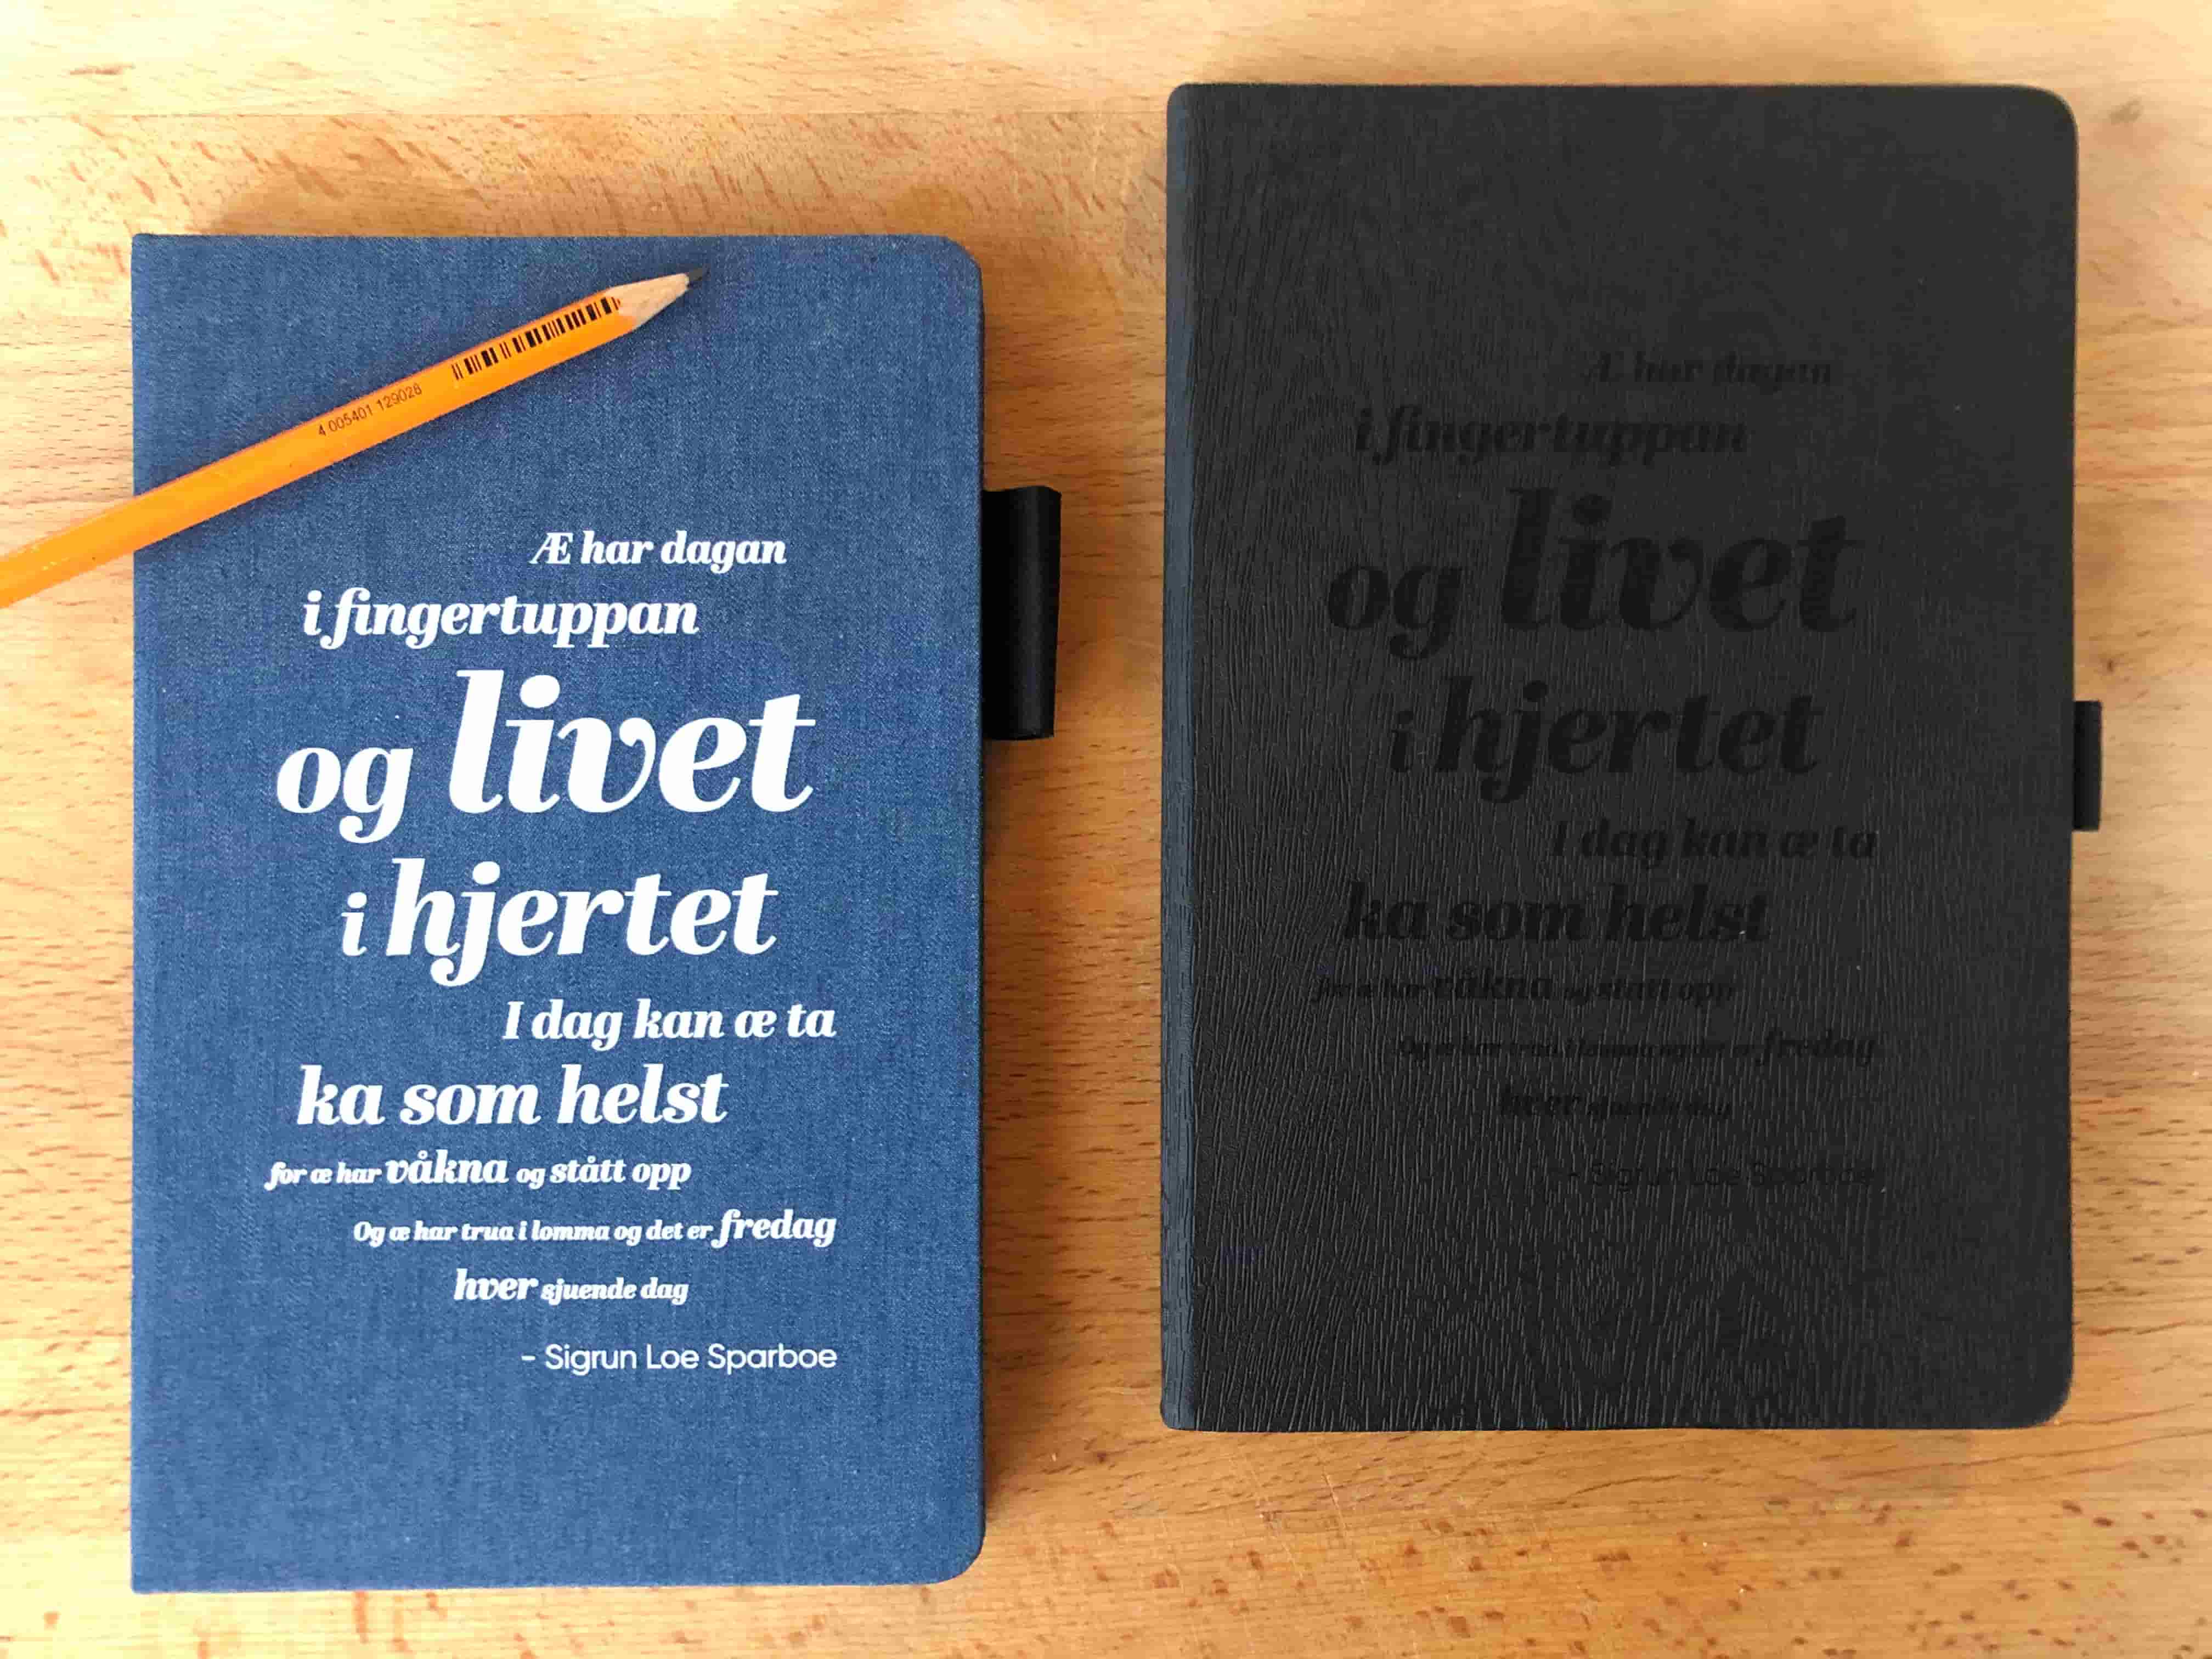 4 005401 129028
Æ har dagan
i fingertuppan
og livet
i hjertet
I dag kan æ ta
ka som helst
for æ har våkna og stått opp
Og æ har trua i lomma og det er fredag
hver sjuende dag
- Sigrun Loe Sparboe
Æ har dagan
i fingertuppan
og livet
i hjertet
I dag kan æ ta
ka som helst
for æ har våkna og stått opp
Og æ har trua i lomma og det er fredag
hver sjuende dag
- Sigrun Loe Sparboe